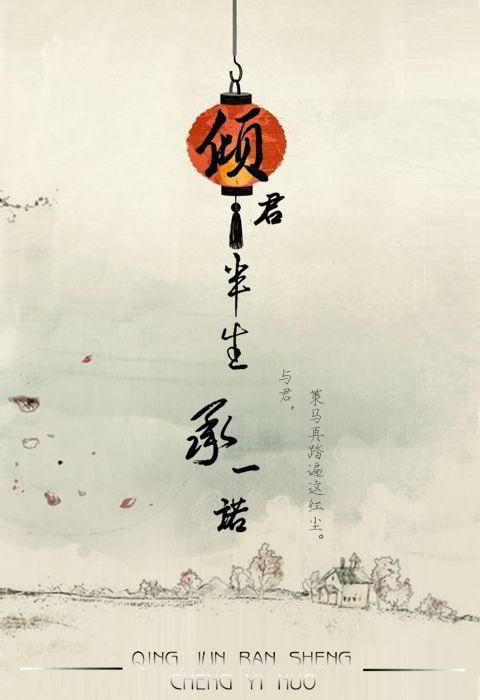 倾君半生承一诺
与君，
策马再踏遍这红尘。
QING JUN BAN SHENG
CHENG YI NUO